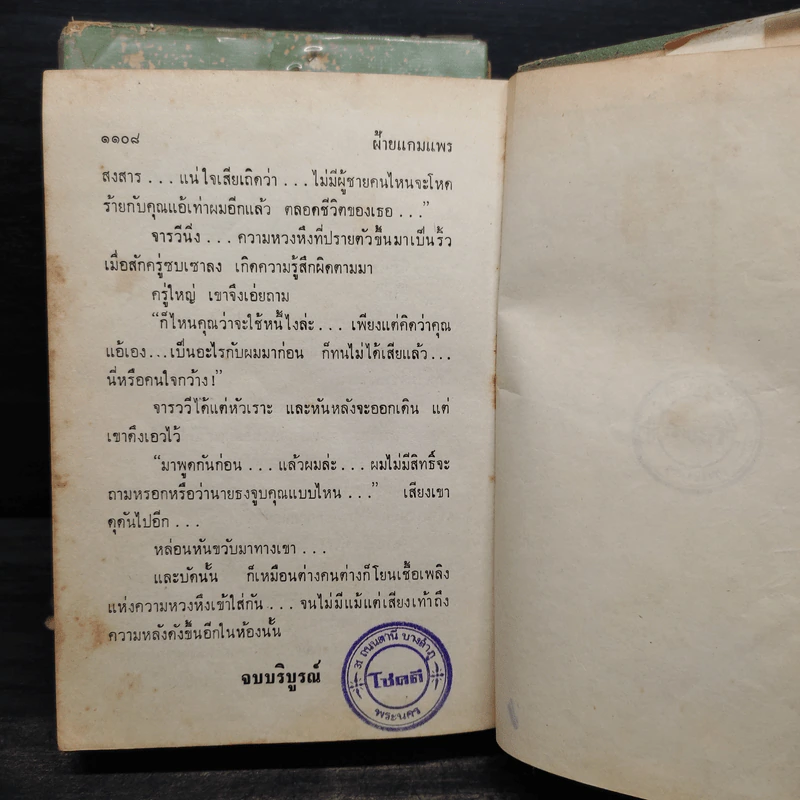 ๑๑๐๘
ฝ้ายแกมแพร
สงสาร . . . แน่ใจเสียเถิดว่า . . . ไม่มีผู้ชายคนไหนจะโหด
ร้ายกับคุณแอ้เท่าผมอีกแล้ว ตลอดชีวิตของเธอ . . .”
จารวีนิ่ง . . . ความหวงหึงที่ปรายตัวขึ้นมาเป็นริ้ว
เมื่อสักครู่ซบเซาลง เกิดความรู้สึกผิดตามมา
ครู่ใหญ่ เขาจึงเอ่ยถาม
“ก็ไหนคุณว่าจะใช้หนี้ไงล่ะ . . . เพียงแต่คิดว่าคุณ
แอ้เอง...เป็นอะไรกับผมมาก่อน ก็ทนไม่ได้เสียแล้ว . . .
นี่หรือคนใจกว้าง !”
จารวรีได้แต่หัวเราะ และหันหลังจะออกเดิน แต่
เขาดึงเอวไว้
“มาพูดกันก่อน . . . แล้วผมล่ะ . . . ผมไม่มีสิทธิ์จะ
ถามหรอกหรือว่านายธงจูบคุณแบบไหน . . .” เสียงเขา
ดุดันไปอีก . . .
หล่อนหันขวับมาทางเขา . . .
และบัดนั้น ก็เหมือนต่างคนต่างก็โยนเชื้อเพลิง
แห่งความหวงหึงเข้าใส่กัน . . . จนไม่มีแม้แต่เสียงเท้าถึง
ความหลังดังขึ้นอีกในห้องนั้น
จบบริบูรณ์
31 ถนนตานี บางลำภู
โชคดี
พระนคร